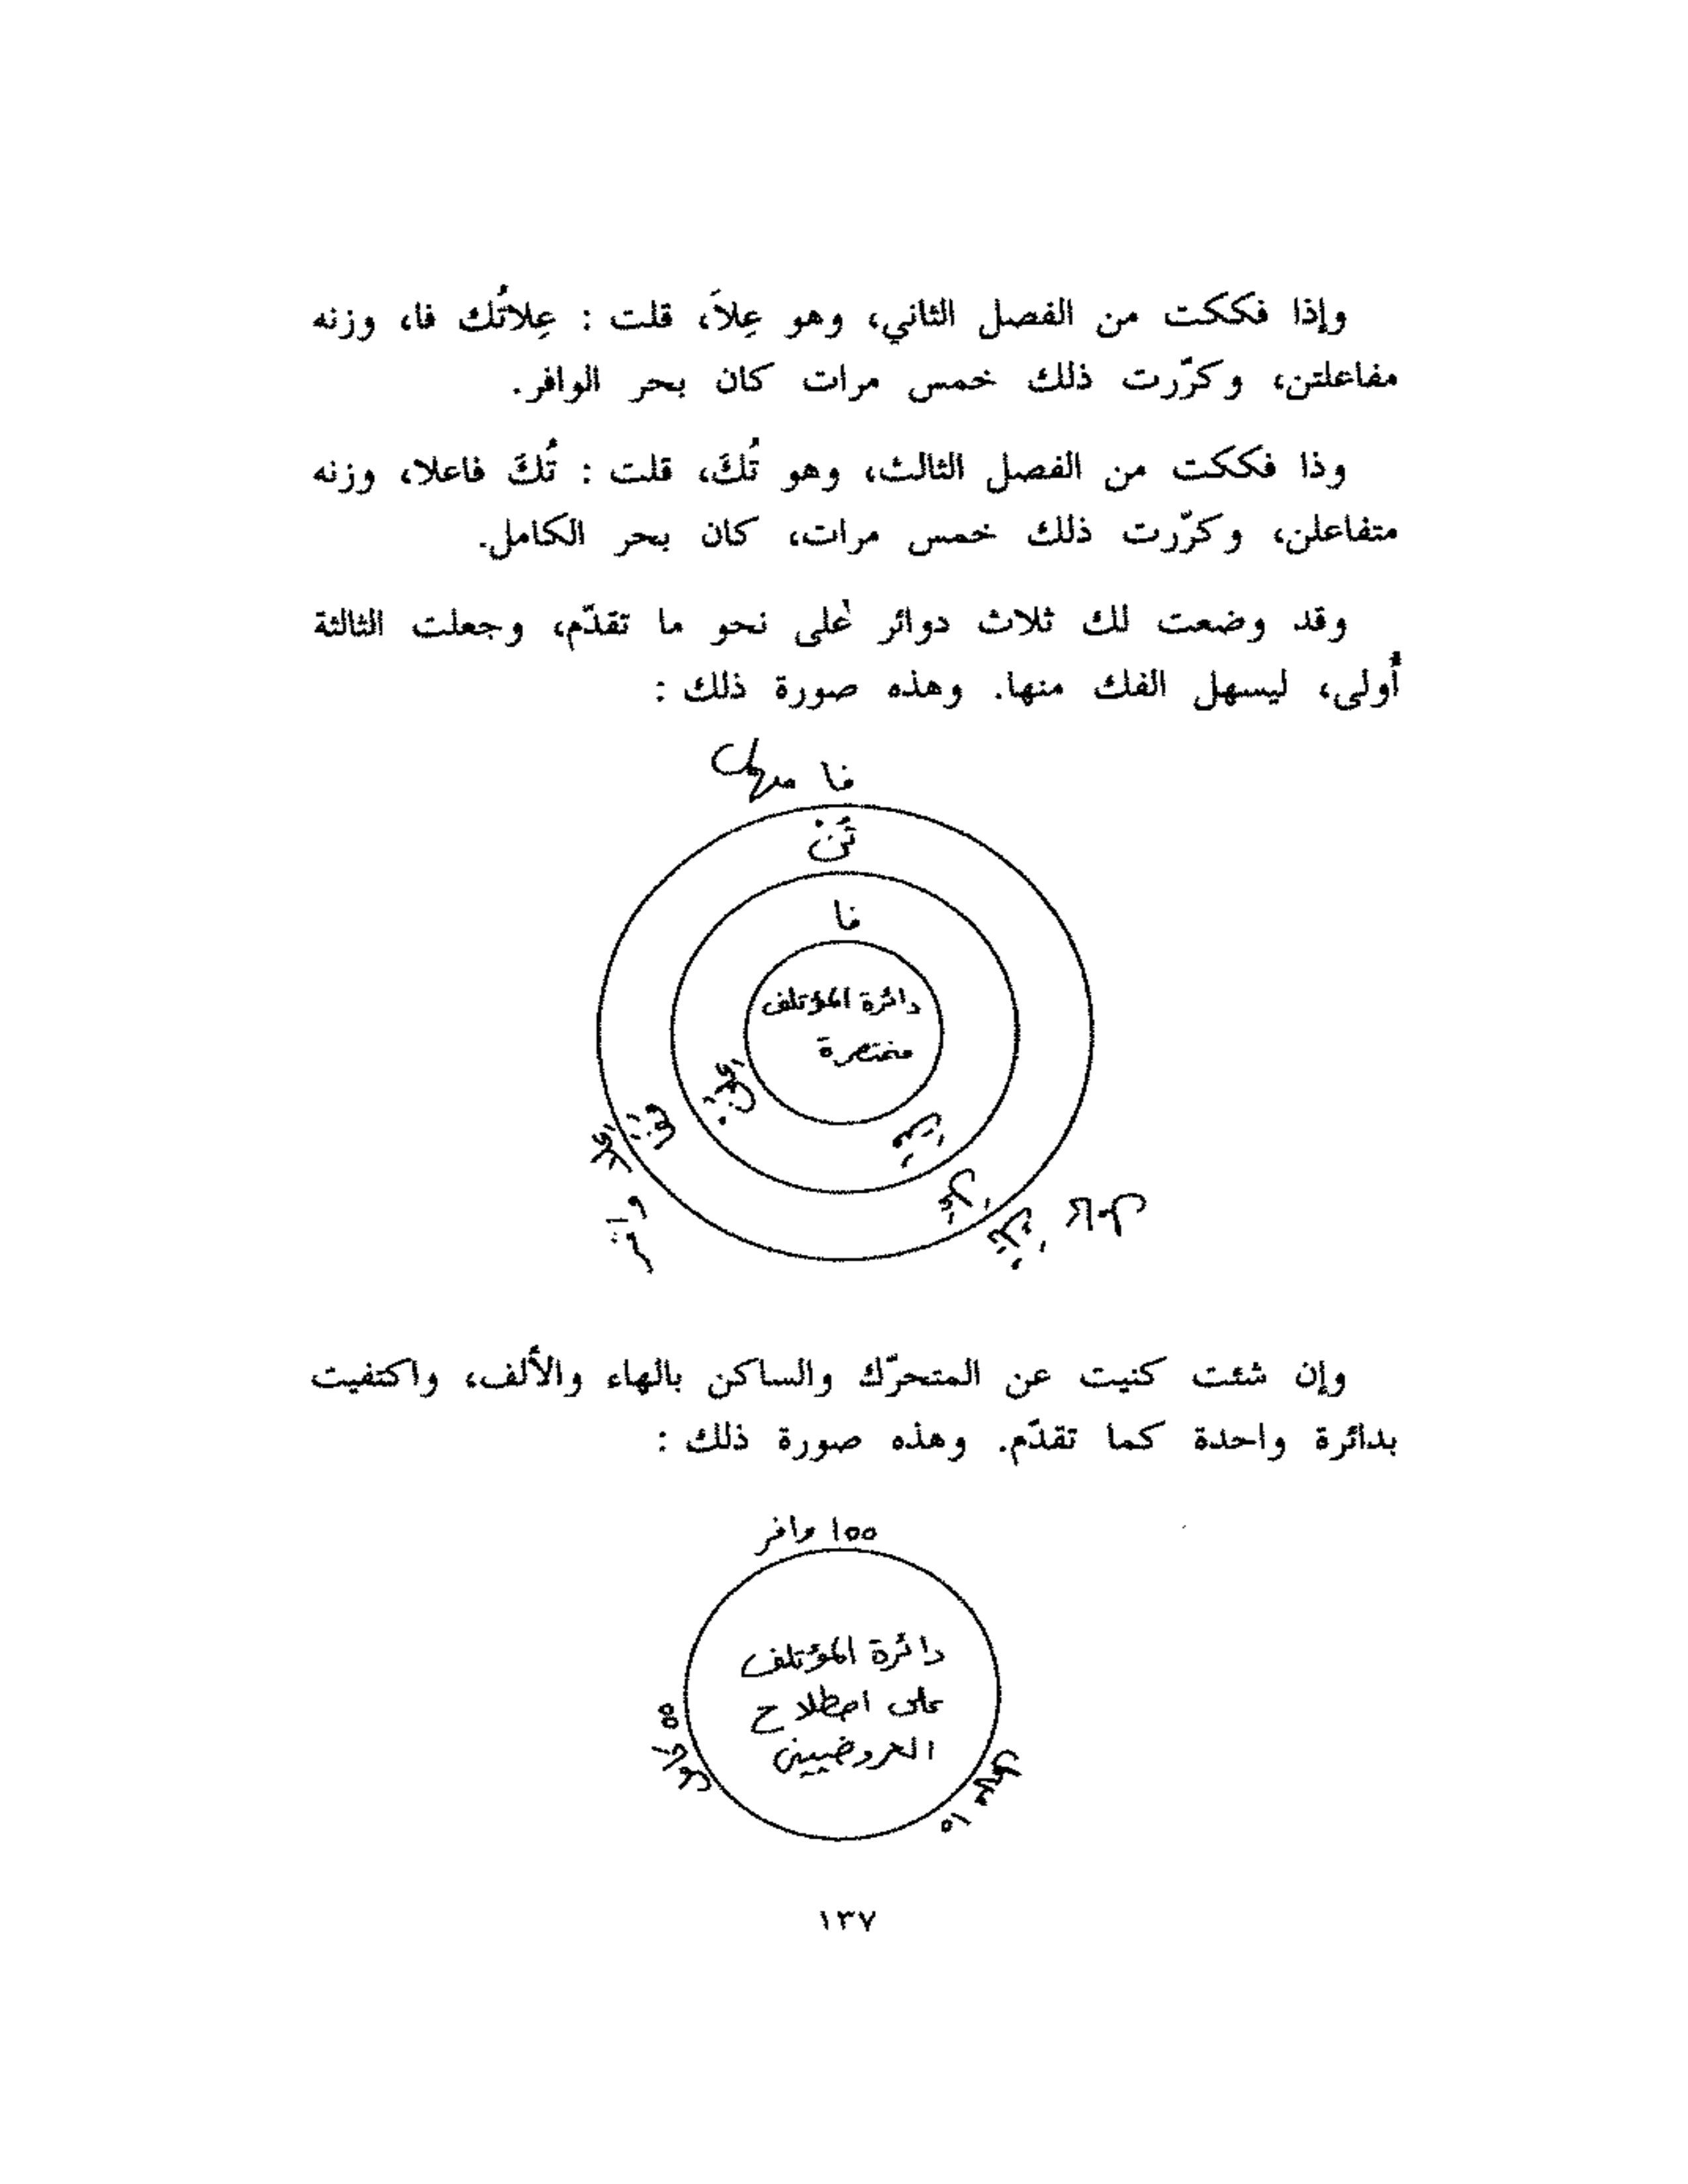 وإذا فككت من الفصل الثاني، وهو عِلاَ، قلت : عِلاتُك فا، وزنه
مفاعلتن، وكرّرت ذلك خمس مرات كان بحر الوافر.
وذا فككت من الفصل الثالث، وهو تُكَ، قلت : تُكَ فاعلا، وزنه
متفاعلن، وكرّرت ذلك خمس مرات، كان بحر الكامل.
وقد وضعت لك ثلاث دوائر على نحو ما تقدّم، وجعلت الثالثة
أولى، ليسهل الفك منها. وهذه صورة ذلك :
فا مهمل
تُنْ
فا
دائرة المؤتلف
مختصرة
وافر
كامل
وإن شئت كنيت عن المتحرّك والساكن بالهاء والألف، واكتفيت
بدائرة واحدة كما تقدّم. وهذه صورة ذلك :
ه‍ه‍ا وافر
دائرة المؤتلف
على اصطلاح
العروضيين
كامل
مهمل
١٣٧